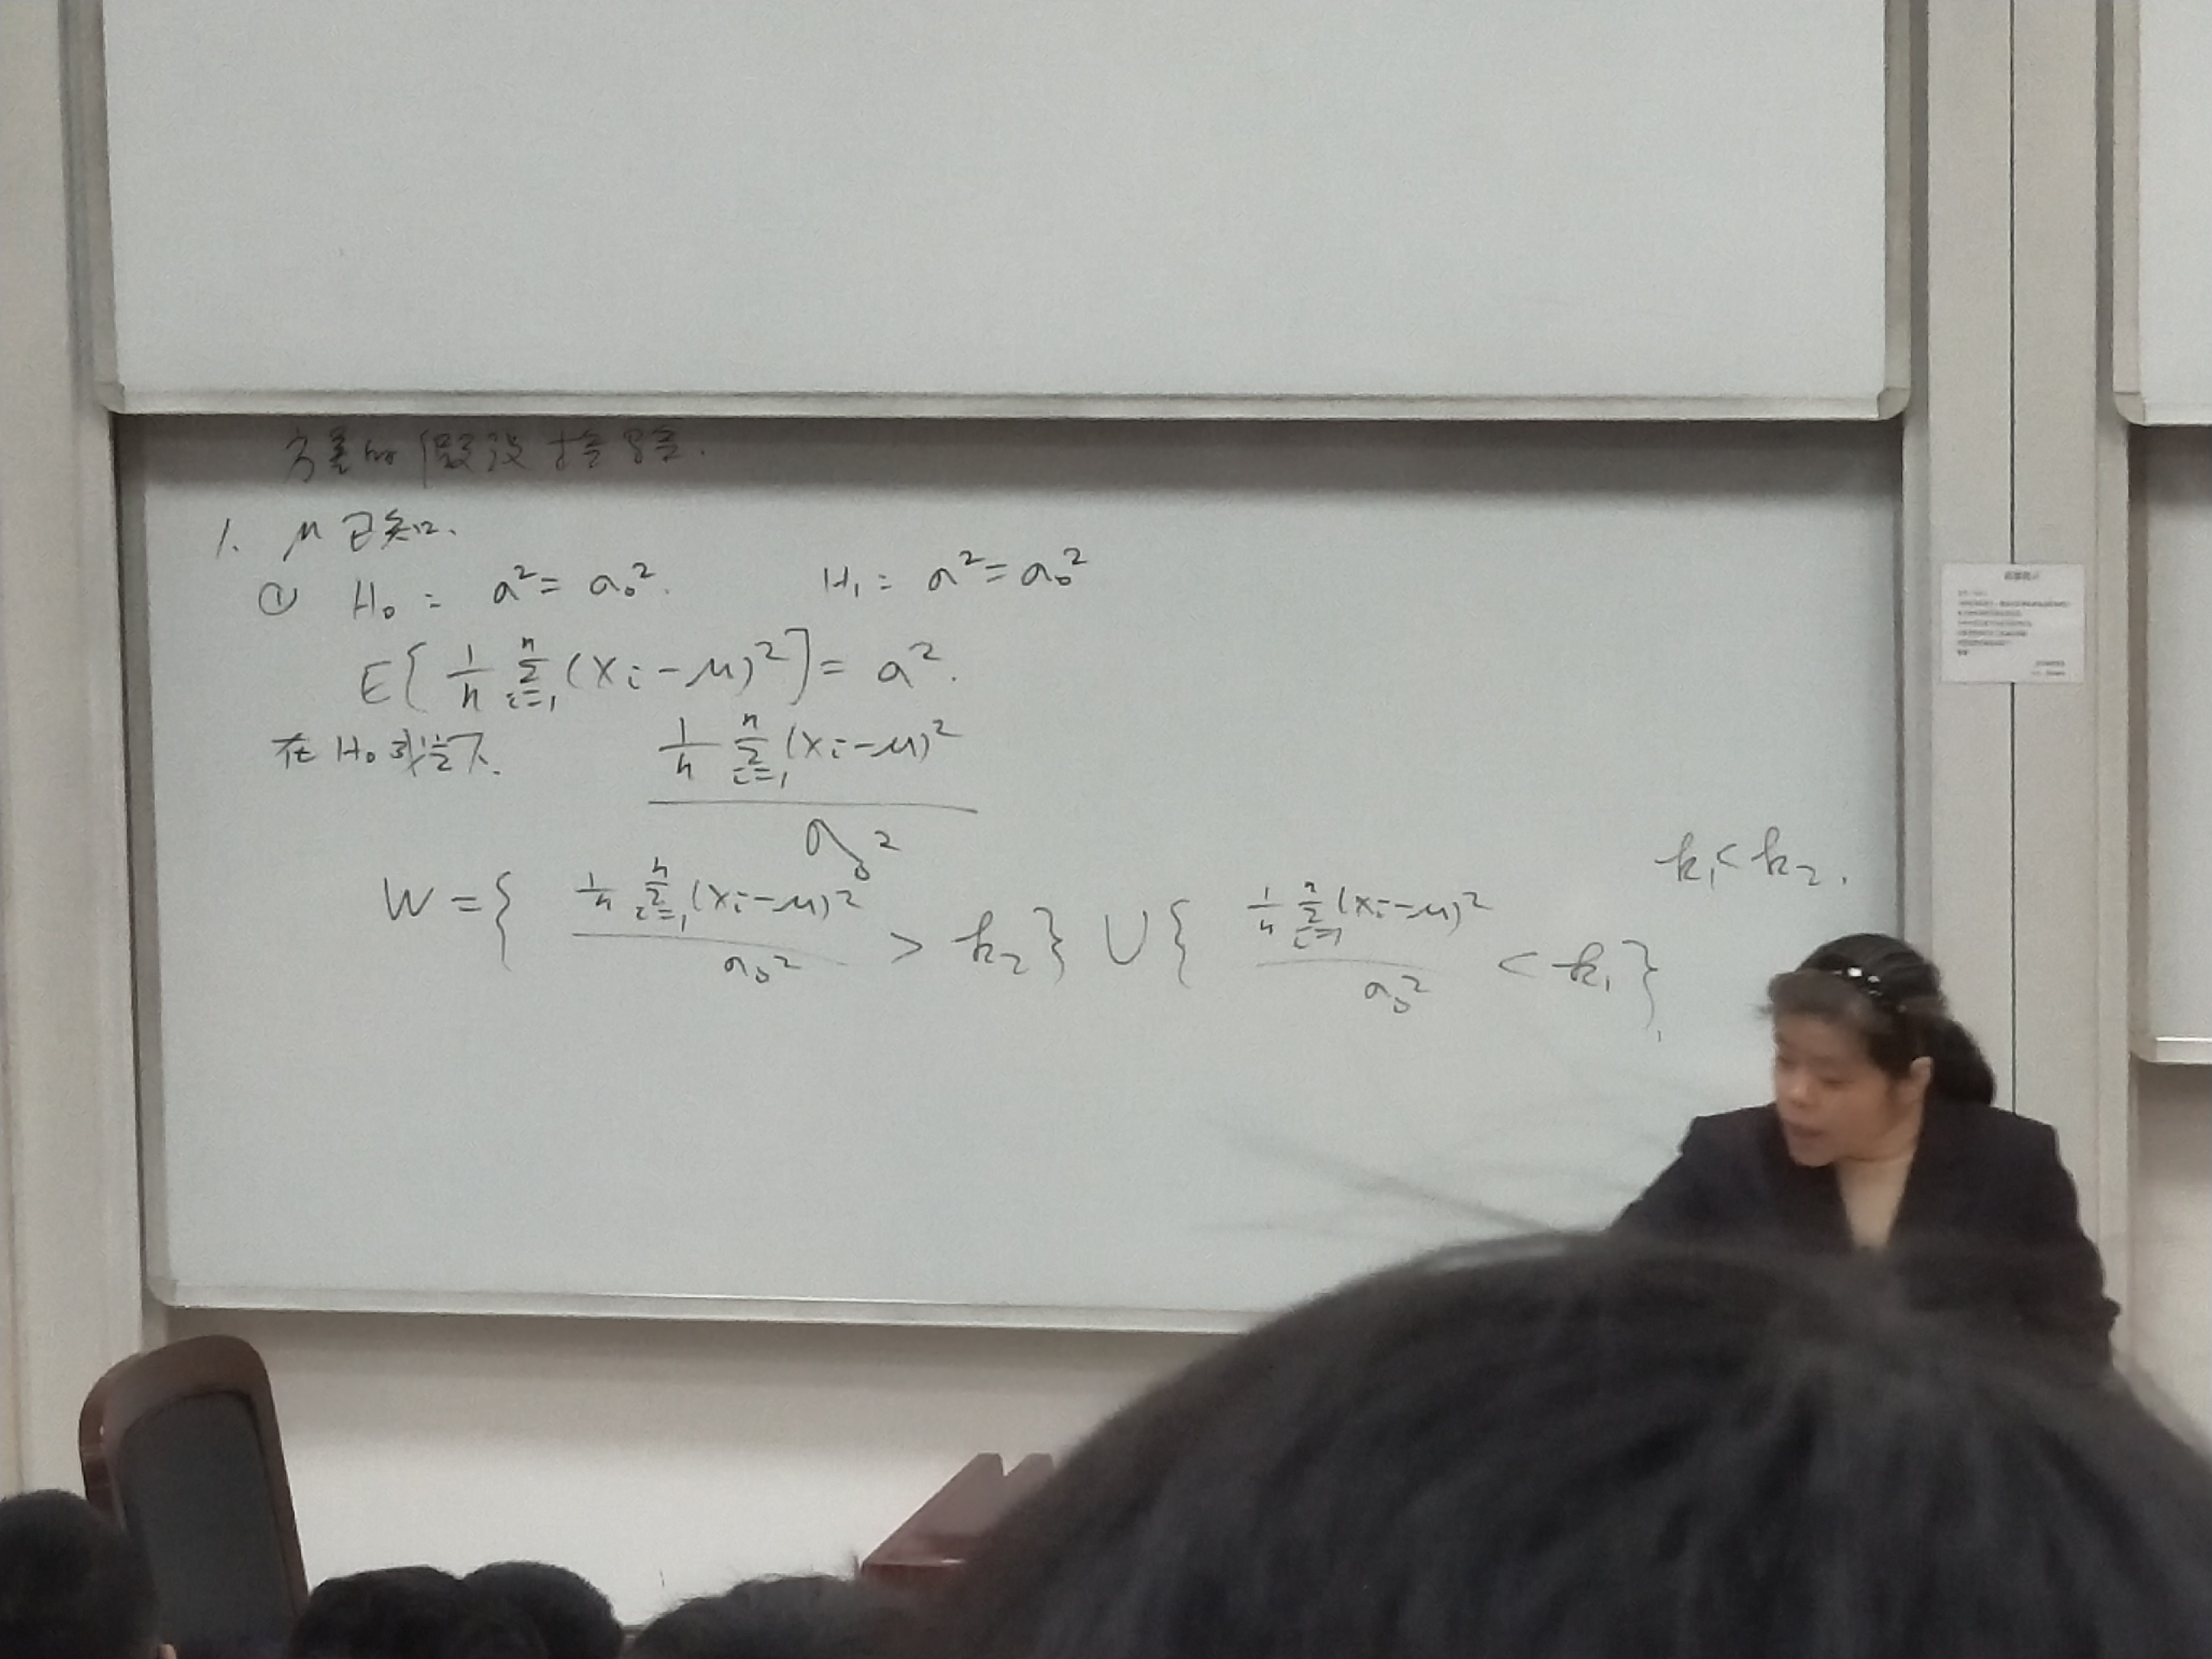 方差的假设检验.
1. μ已知.
① H₀: a² = a₀². H₁: a² = a₀²
E[1/n Σᵢ₌₁ⁿ (Xᵢ-μ)²] = a².
在H₀成立下. (1/n Σᵢ₌₁ⁿ (Xᵢ-μ)²) / a₀²
k₁ < k₂.
W = { (1/n Σᵢ₌₁ⁿ (Xᵢ-μ)²) / a₀² > k₂ } ∪ { (1/n Σᵢ₌₁ⁿ (Xᵢ-μ)²) / a₀² < k₁ }.